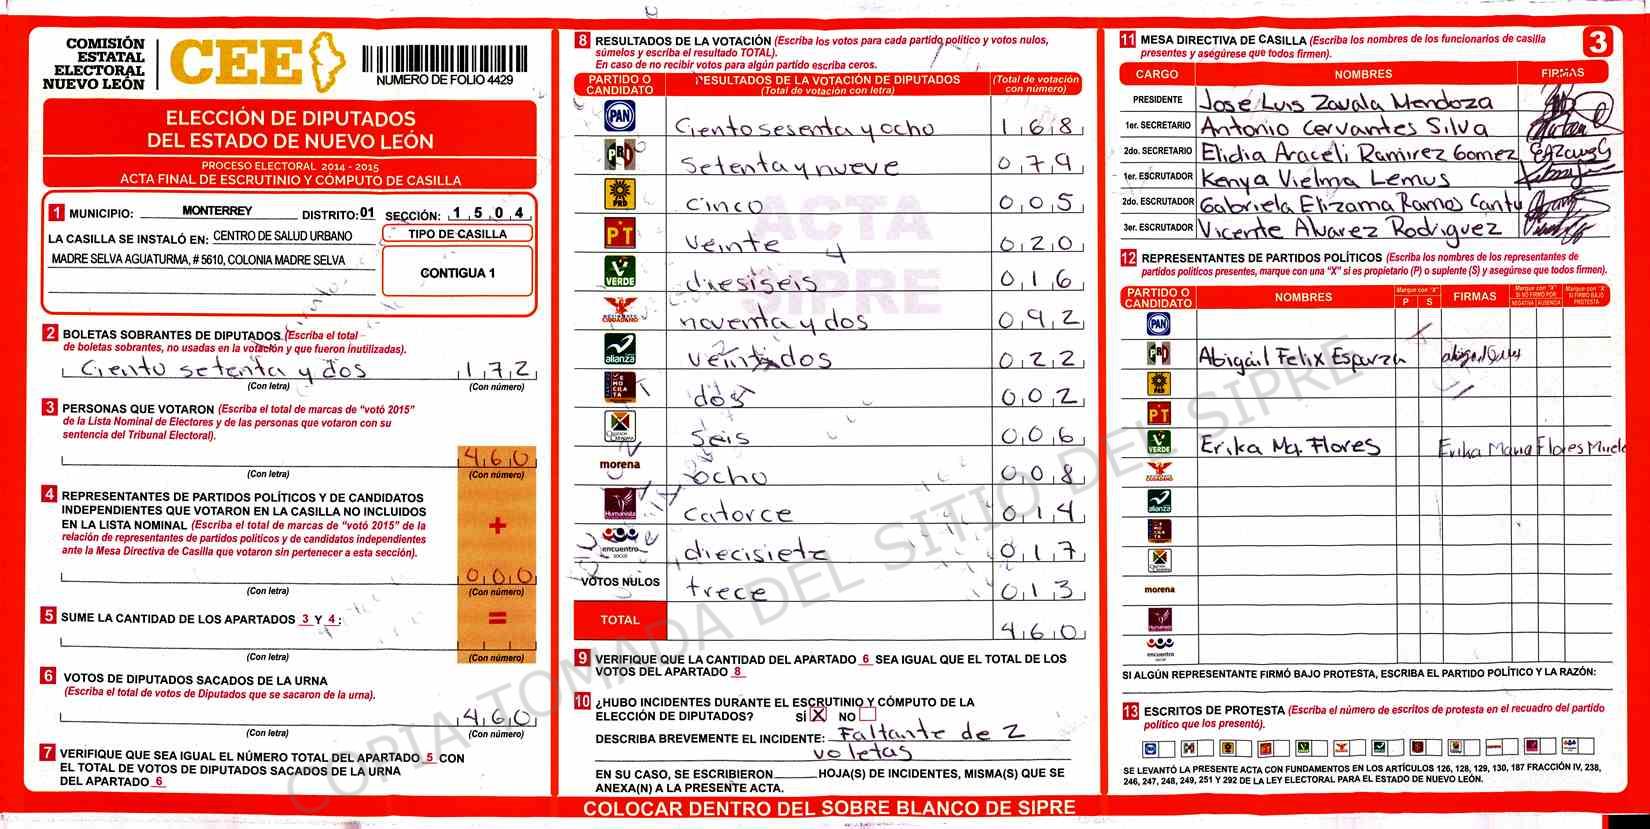 COMISIÓN
ESTATAL
ELECTORAL
NUEVO LEÓN
CEE
NUMERO DE FOLIO 4429
ELECCIÓN DE DIPUTADOS
DEL ESTADO DE NUEVO LEÓN
PROCESO ELECTORAL 2014 - 2015
ACTA FINAL DE ESCRUTINIO Y CÓMPUTO DE CASILLA
1 MUNICIPIO: MONTERREY DISTRITO: 01 SECCIÓN: 1 5 0 4
LA CASILLA SE INSTALÓ EN: CENTRO DE SALUD URBANO
MADRE SELVA AGUATURMA, # 5610, COLONIA MADRE SELVA
TIPO DE CASILLA
CONTIGUA 1
2 BOLETAS SOBRANTES DE DIPUTADOS (Escriba el total
de boletas sobrantes, no usadas en la votación y que fueron inutilizadas).
Ciento setenta y dos 1 7 2
(Con letra) (Con número)
3 PERSONAS QUE VOTARON (Escriba el total de marcas de "votó 2015"
de la Lista Nominal de Electores y de las personas que votaron con su
sentencia del Tribunal Electoral).
4 6 0
(Con letra) (Con número)
4 REPRESENTANTES DE PARTIDOS POLÍTICOS Y DE CANDIDATOS
INDEPENDIENTES QUE VOTARON EN LA CASILLA NO INCLUIDOS
EN LA LISTA NOMINAL (Escriba el total de marcas de "votó 2015" de la
relación de representantes de partidos políticos y de candidatos independientes
ante la Mesa Directiva de Casilla que votaron sin pertenecer a esta sección).
+
0 0 0
(Con letra) (Con número)
5 SUME LA CANTIDAD DE LOS APARTADOS 3 Y 4:
=
(Con letra) (Con número)
6 VOTOS DE DIPUTADOS SACADOS DE LA URNA
(Escriba el total de votos de Diputados que se sacaron de la urna).
4 6 0
(Con letra) (Con número)
7 VERIFIQUE QUE SEA IGUAL EL NÚMERO TOTAL DEL APARTADO 5 CON
EL TOTAL DE VOTOS DE DIPUTADOS SACADOS DE LA URNA
DEL APARTADO 6
8 RESULTADOS DE LA VOTACIÓN (Escriba los votos para cada partido político y votos nulos,
súmelos y escriba el resultado TOTAL).
En caso de no recibir votos para algún partido escriba ceros.
PARTIDO O CANDIDATO RESULTADOS DE LA VOTACIÓN DE DIPUTADOS (Total de votación con letra) (Total de votación con número)
PAN Ciento sesenta y ocho 1 6 8
PRI setenta y nueve 0 7 9
PRD cinco 0 0 5
PT veinte 0 2 0
VERDE diesiseis 0 1 6
MOVIMIENTO CIUDADANO noventa y dos 0 9 2
alianza veintidos 0 2 2
DEMOCRATA dos 0 0 2
seis 0 0 6
morena ocho 0 0 8
Humanista catorce 0 1 4
encuentro social diecisiete 0 1 7
VOTOS NULOS trece 0 1 3
TOTAL 4 6 0
ACTA
SIPRE
9 VERIFIQUE QUE LA CANTIDAD DEL APARTADO 6 SEA IGUAL QUE EL TOTAL DE LOS
VOTOS DEL APARTADO 8
10 ¿HUBO INCIDENTES DURANTE EL ESCRUTINIO Y CÓMPUTO DE LA
ELECCIÓN DE DIPUTADOS? SÍ X NO
DESCRIBA BREVEMENTE EL INCIDENTE: Faltante de 2
voletas
EN SU CASO, SE ESCRIBIERON HOJA(S) DE INCIDENTES, MISMA(S) QUE SE
ANEXA(N) A LA PRESENTE ACTA.
COLOCAR DENTRO DEL SOBRE BLANCO DE SIPRE
11 MESA DIRECTIVA DE CASILLA (Escriba los nombres de los funcionarios de casilla
presentes y asegúrese que todos firmen).
3
CARGO NOMBRES FIRMAS
PRESIDENTE Jose Luis Zavala Mendoza
1er. SECRETARIO Antonio Cervantes Silva
2do. SECRETARIO Elidia Araceli Ramirez Gomez
1er. ESCRUTADOR Kenya Vielma Lemus
2do. ESCRUTADOR Gabriela Elizama Ramos Cantu
3er. ESCRUTADOR Vicente Alvarez Rodriguez
12 REPRESENTANTES DE PARTIDOS POLÍTICOS (Escriba los nombres de los representantes de
partidos políticos presentes, marque con una "X" si es propietario (P) o suplente (S) y asegúrese que todos firmen).
PARTIDO O CANDIDATO NOMBRES Marque con "X" P S FIRMAS Marque con "X" SI NO FIRMÓ POR NEGATIVA AUSENCIA Marque con "X" SI FIRMÓ BAJO PROTESTA
PAN
PRI Abigail Felix Esparza
PRD
PT
VERDE Erika Ma. Flores Erika Maria Flores
alianza
morena
Humanista
encuentro social
SI ALGÚN REPRESENTANTE FIRMÓ BAJO PROTESTA, ESCRIBA EL PARTIDO POLÍTICO Y LA RAZÓN:
13 ESCRITOS DE PROTESTA (Escriba el número de escritos de protesta en el recuadro del partido
político que los presentó).
SE LEVANTÓ LA PRESENTE ACTA CON FUNDAMENTOS EN LOS ARTÍCULOS 126, 128, 129, 130, 187 FRACCIÓN IV, 238,
246, 247, 248, 249, 251 Y 292 DE LA LEY ELECTORAL PARA EL ESTADO DE NUEVO LEÓN.
COPIA TOMADA DEL SITIO DEL SIPRE